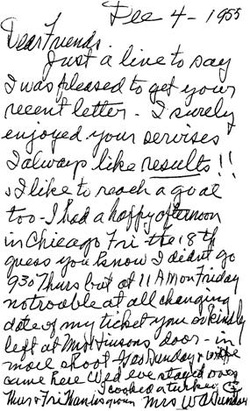 Dec 4 - 1955
Dear Friends.
Just a live to say
I was pleased to get your
recent letter - I surely
enjoyed your servises
I always like results!!
I like to reach a goal
too - I had a happy afternoon
in Chicago Fri - the 18th
guess you know I didn't go
930 Thurs but at 11 AM on Friday
no trouble at all changing
date of my ticket you so kindly
left at Mrs door - in
more
came here Wed eve stayed over
I cooked a turkey
Thur & Fri Thanksgiven Mrs W A